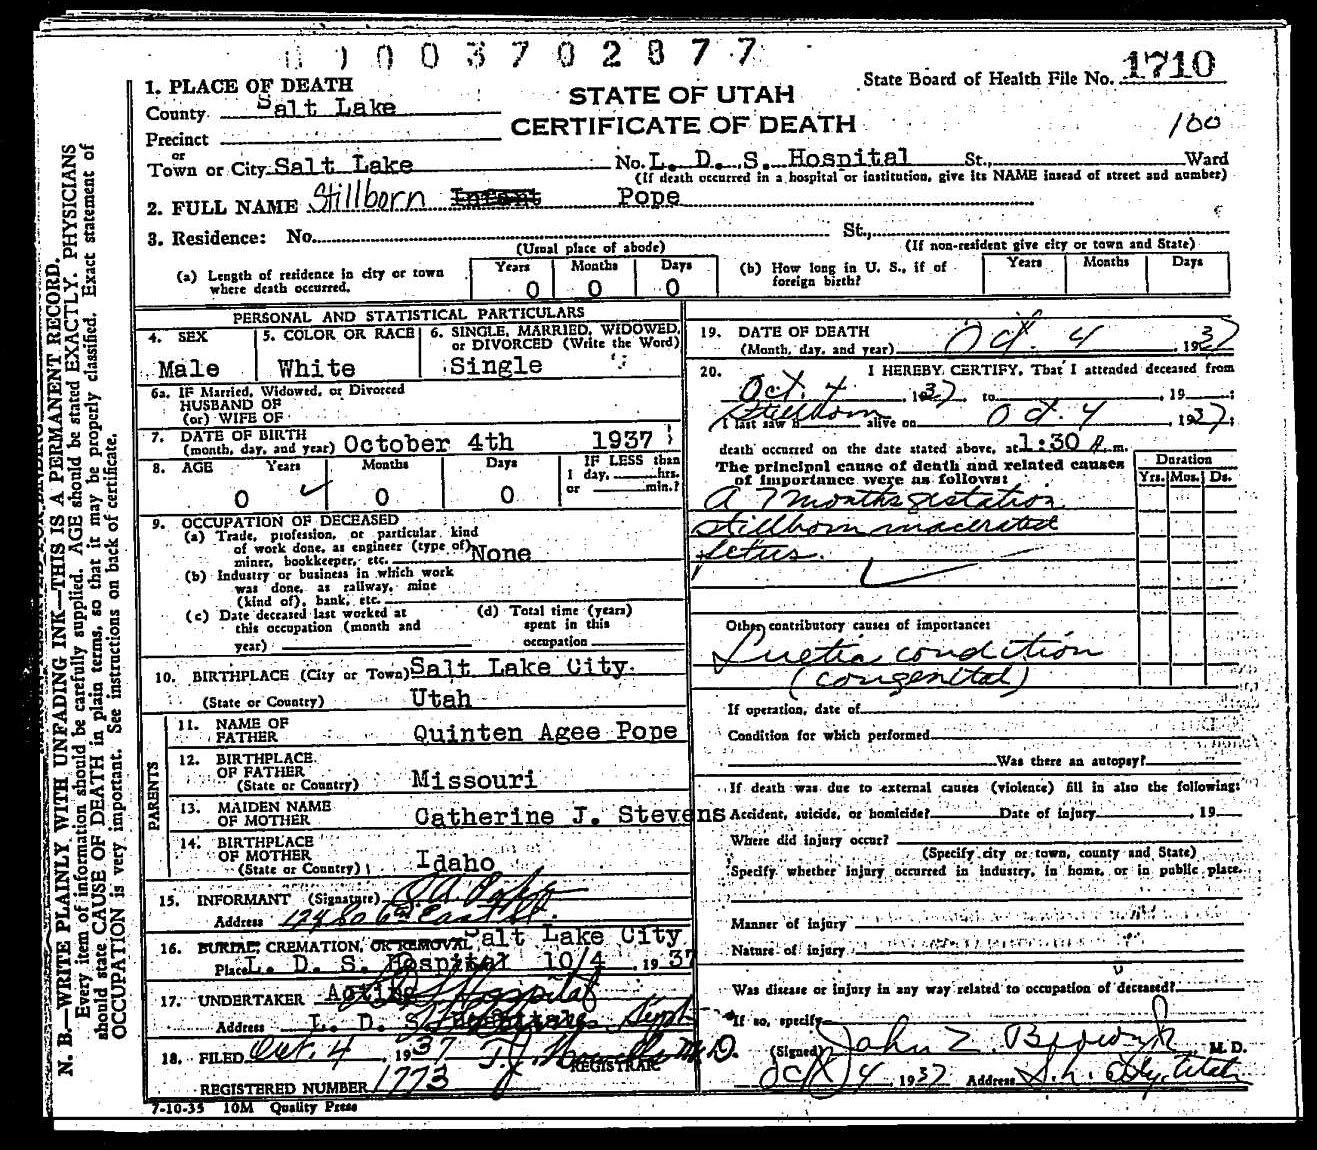 003702877
State Board of Health File No. 1710
1. PLACE OF DEATH
STATE OF UTAH
County Salt Lake
CERTIFICATE OF DEATH
100
Precinct
or
Town or City Salt Lake No. L. D. S. Hospital St., Ward
(If death occurred in a hospital or institution, give its NAME insead of street and number)
2. FULL NAME Stillborn Infant Pope
3. Residence: No. St.,
(Usual place of abode) (If non-resident give city or town and State)
(a) Length of residence in city or town where death occurred. Years 0 Months 0 Days 0
(b) How long in U. S., if of foreign birth? Years Months Days
PERSONAL AND STATISTICAL PARTICULARS
4. SEX 5. COLOR OR RACE 6. SINGLE, MARRIED, WIDOWED, or DIVORCED (Write the Word)
Male White Single
6a. IF Married, Widowed, or Divorced
HUSBAND OF
(or) WIFE OF
7. DATE OF BIRTH
(month, day, and year) October 4th 1937
8. AGE Years Months Days IF LESS than
1 day, hrs.
or min.?
0 0 0
9. OCCUPATION OF DECEASED
(a) Trade, profession, or particular kind
of work done, as engineer (type of)
miner, bookkeeper, etc. None
(b) Industry or business in which work
was done, as railway, mine
(kind of), bank, etc.
(c) Date deceased last worked at
this occupation (month and
year)
(d) Total time (years)
spent in this
occupation
10. BIRTHPLACE (City or Town) Salt Lake City.
(State or Country) Utah
PARENTS
11. NAME OF
FATHER Quinten Agee Pope
12. BIRTHPLACE
OF FATHER
(State or Country) Missouri
13. MAIDEN NAME
OF MOTHER Catherine J. Stevens
14. BIRTHPLACE
OF MOTHER
(State or Country) Idaho
15. INFORMANT (Signature) Q.A. Pope
Address
16. BURIAL, CREMATION, OR REMOVAL Salt Lake City
Place L. D. S. Hospital 10/4, 1937
17. UNDERTAKER Acting Hospital
Address L. D. S. Hospital
18. FILED Oct. 4, 1937 M.D.
REGISTRAR
REGISTERED NUMBER 1773
7-10-35 10M Quality Press
19. DATE OF DEATH
(Month, day, and year) Oct. 4, 1937
20. I HEREBY CERTIFY, That I attended deceased from
Oct. 4, 1937, to , 19 ;
I last saw h Stillborn alive on Oct. 4, 1937;
death occurred on the date stated above, at 1:30 A. m.
The principal cause of death and related causes
of importance were as follows:
Duration
Yrs. Mos. Ds.
A 7 months gestation
stillborn macerated
fetus.
Other contributory causes of importance:
Luetic condition
(congenital)
If operation, date of
Condition for which performed
Was there an autopsy?
If death was due to external causes (violence) fill in also the following:
Accident, suicide, or homicide? Date of injury , 19
Where did injury occur?
(Specify city or town, county and State)
Specify whether injury occurred in industry, in home, or in public place.
Manner of injury
Nature of injury
Was disease or injury in any way related to occupation of deceased?
If so, specify
(Signed) John Z. Brown Jr M. D.
Oct 4 1937 Address S. L. City, Utah
N. B.—WRITE PLAINLY WITH UNFADING INK—THIS IS A PERMANENT RECORD.
Every item of information should be carefully supplied. AGE should be stated EXACTLY. PHYSICIANS
should state CAUSE OF DEATH in plain terms, so that it may be properly classified. Exact statement of
OCCUPATION is very important. See instructions on back of certificate.